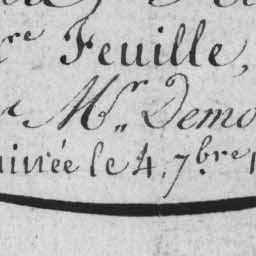 re Feuille,
Mr. Demo
le 4. 7bre